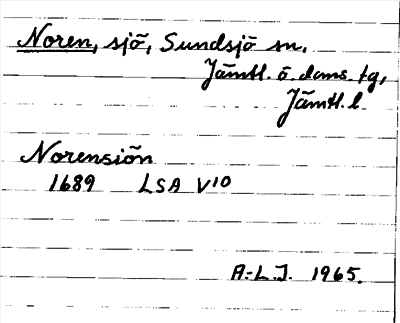 Noren, sjö, Sundsjö sn,
Jämtl. ö. doms. tg,
Jämtl. l.
Norensiön
1689 LSA V10
A-L.J. 1965.